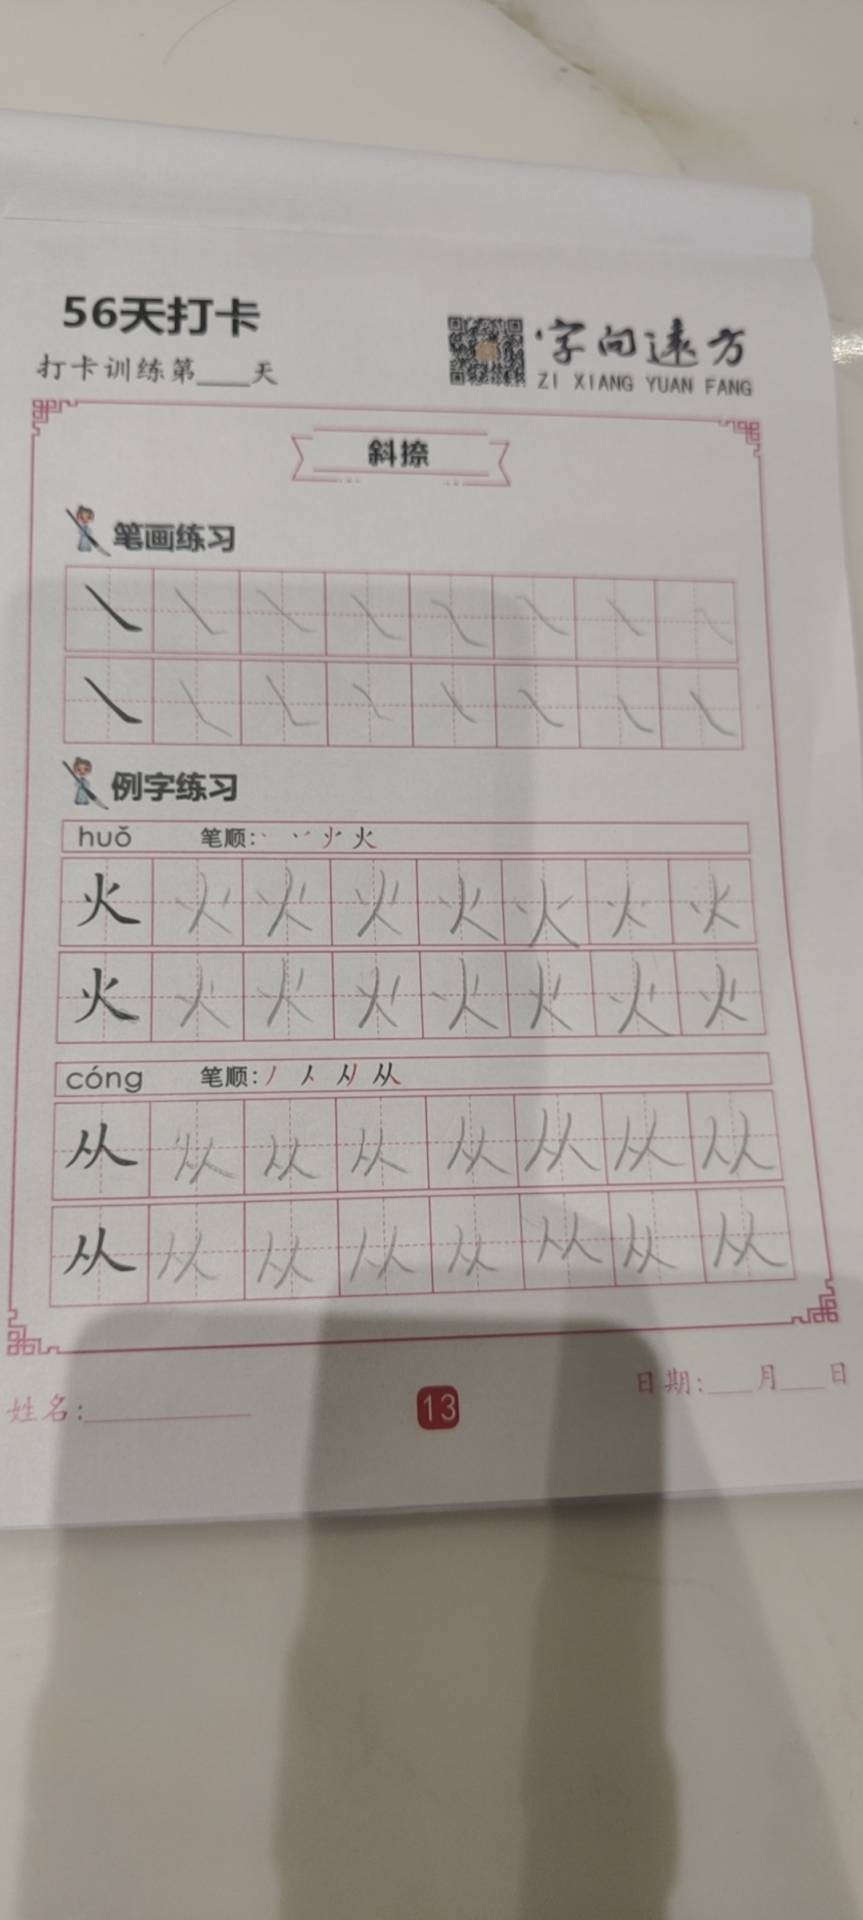 56天打卡
打卡训练第____天
字向远方
ZI XIANG YUAN FANG
斜捺
笔画练习
㇏ ㇏ ㇏ ㇏ ㇏ ㇏ ㇏ ㇏
㇏ ㇏ ㇏ ㇏ ㇏ ㇏ ㇏ ㇏
例字练习
huǒ 笔顺: 火
火 火 火 火 火 火 火 火
火 火 火 火 火 火 火 火
cóng 笔顺: 丿 人 从
从 从 从 从 从 从 从 从
从 从 从 从 从 从 从 从
姓名:__________ 13 日期:___月___日